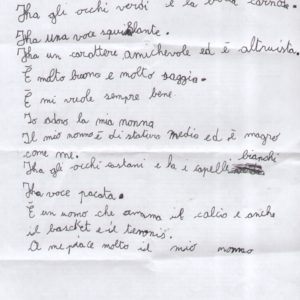 Ha gli occhi versi e la bocca carnosa.
Ha una voce squillante.
Ha un carattere amichevole ed è altruista.
È molto buona e molto saggia.
E mi vuole sempre bene.
Io adoro la mia nonna
Il mio nonno è di statura medio ed è magro
come me.
Ha gli occhi castani e ha i capelli bianchi
Ha voce pacata.
È un uomo che ama il calcio e anche
il basket e il tennis.
A me piace molto il mio nonno